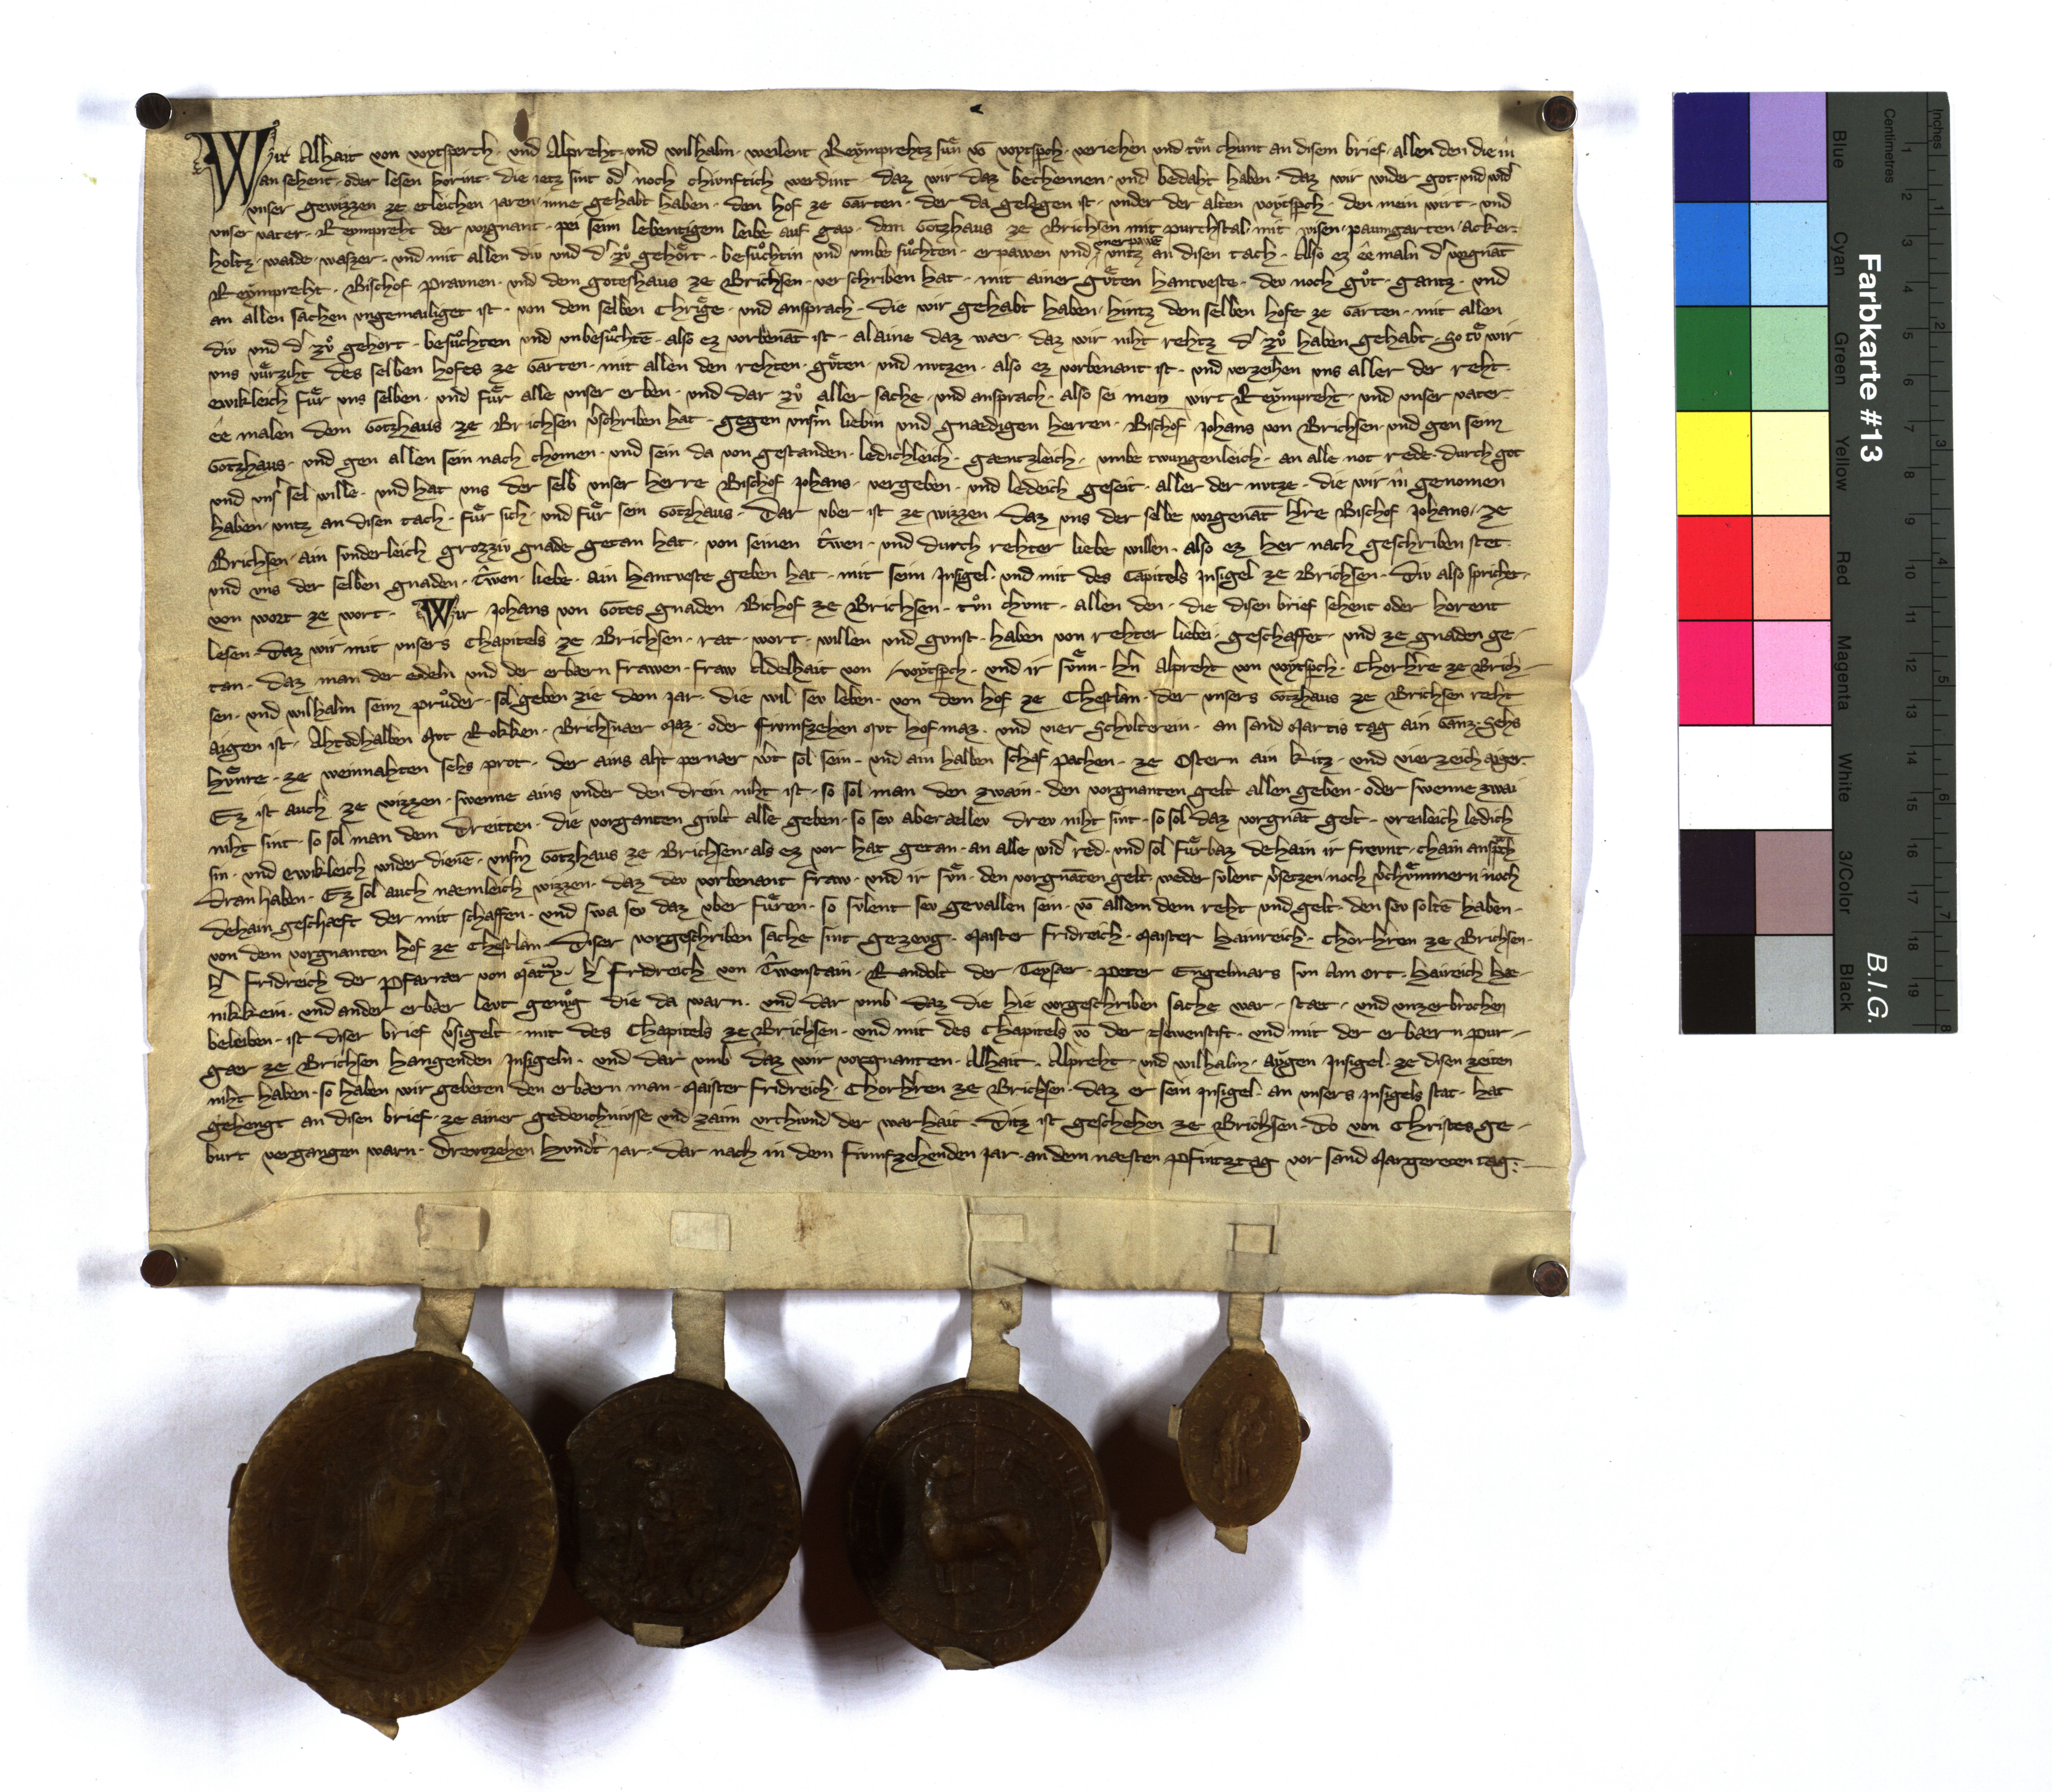 Wir Alhait von voytsperch · und Alpreht · und wilhalm · weilent Reymprehtz sun vō voytspch · veriehen und tvn chunt an disem brief · allen den die in
an sehent · oder lesen horint · die ietz sint od noch chunftich werdint · daz wir daz bechennen · und bedaht haben · daz wir wider got · und wid
unser gewizzen ze etleichen jaren · inne gehabt haben · den hof ze Garten · der da gelegen ist · under der alten voytspch · den mein wirt · und
unser vater · Reympreht der vorgnant · pei seim lebentigem leibe auf gap · dem Gotzhaus ze Brichsen mit purchstal · mit wisen · paumgarten / Acker ·
holtz · waide · wazzer · und mit allen div und d zů gehört · besuchtin und umbe suchten · erpawen und unerpawē untz an disen tach · Also ez ee maln d vorgnāt
Reympreht · Bischof · praunen · und dem goteshaus ze Brichsen · ver schriben hat · mit ainer guten hantveste · dev noch gůt · gantz · und
an allen sachen ungemailiget ist · von dem selben Chrige · und ansprach · die wir gehabt haben / hintz dem selben hofe ze Garten · mit allen
div und d zů gehort · besuchten und unbesuchtē · also ez vorbenāt ist · alaine daz wær · daz wir niht rehtz d zů haben gehabt · So tů wir
uns fürziht des selben hofes ze Garten · mit allen den rehten · guten · und nutzen · also ez vorbenant ist · und verzeihen uns aller der reht ·
ewikleich für uns selben · und für alle unser erben · und dar zů aller sache · und ansprach · also sei mein wirt Reympreht · und unser vater
ee malen dem Gotzhaus ze Brichsen vschriben hat · gegen unsm liebin und gnædigen herren · Bischof · Johans von Brichsen · und gen seim
Gotzhaus · und gen allen sein nach chomen · und sein da von gestanden · ledichleich · gæntzleich · umbe twungenleich · an alle not rede · durch got
und uns sel wille · und hat uns der selb unser herre Bischof Johans · vergeben · und ledeich geseit · aller der nutze · die wir in genomen
haben · untz an disen tach · für sich · und für sein Gotzhaus · Dar uber ist ze wizzen · daz uns der selbe vorgenāt hre Bischof Johans / ze
Brichsen / ain sunderleich grozziv gnade getan hat · von seinen trwen · und durch rehter liebe willen · also ez her nach geschriben stet ·
und uns der selben gnaden · trwen · liebe · ain hantveste geben hat · mit seim Insigel · und mit des Capitels Insigel ze Brichsen · Div also sprichet ·
von wort ze wort · Wir Johans von Gotes gnaden Bichof ze Brichsen · tůn chunt · allen den · die disen brief sehent oder horent
lesen · Daz wir mit unsers Chapitels ze Brichsen · rat · wort · willen und gunst · haben von rehter liebe · geschaffet · und ze gnaden ge-
tan · daz man der edeln und der erbærn frawen · fraw Adelhait von voytspch · und ir sůn · hn Alpreht von voytspch · Chorhre ze Brich-
sen · und wilhalm seim průder · sol geben zie dem jar · die wil sev leben · von dem hof ze Chestlan · der unsers Gotzhaus ze Brichsen reht
aigen ist · Ahtodhalben Mut Rokken · Brichsnær Maz · oder fiumfzehen Mut hof maz · und vier Schulterein · an sand Martis tag ain Gans · Sehs
hunre · ze weinnahten sehs prot · der ains aht pernær wt sol sein · und ain halben schaf pachen · ze Ostern ain kitz · und vierzeich aiger ·
Ez ist auch ze wizzen · swenne ains under den drein niht ist · so sol man den zwain · den vorgnanten gelt allen geben · oder swenne zwai
niht sint · so sol man dem Dreitten · die vorganten givlt alle geben · so sev aber ællev drev niht sint · so sol daz vorgnāt gelt · vreileich ledich
sin · und ewikleich under dienē · unsm Gotzhaus ze Brichsen · als ez vor hat getan · an alle wid red · und sol fürbaz dehain ir frevnt · chain ansprch
dran haben · Ez sol auch næmleich wizzen · daz dev vorbenant fraw · und ir sůn · den vorgnāten gelt · weder sulent vsetzen noch vchümmern noch
dehain geschæft der mit schaffen · und swa sev daz uber füren · so sulent sev gevallen sein · vō allem dem reht und gelt · den sev soltē haben ·
von dem vorgnanten hof ze Chestlan · Diser vorgeschriben sache sint gezevg · Maister fridreich · Maister hainreich · Chorhren ze Brichsen ·
h fridreich der pfarrær von Matray · h fridreich von Trwenstain · Randolt der Teyser · peter Engelmars sun am ort · haireich hæ-
nikkein · und ander erbær levt genůg die da warn · und dar umb daz die hie vorgeschriben sache war · stæt · und unzerbrochen
beleiben · ist diser brief vsigelt · mit des Chapitels ze Brichsen · und mit des Chapitels vō der Newenstift · und mit der erbærn pur-
gær ze Brichsen hangenden Insigeln · und dar umb daz wir vorgnanten · Alhait · Alpreht · und wilhalm · aygen Insigel · ze disen zeiten
niht haben · so haben wir gebeten den erbærn man · Maister fridreich · Chorhren ze Brichsen · daz er sein Insigel · an unsers Insigels stat · hat
gehengt an disen brief · ze ainer gedenchnusse und zaim urchund der warhait · Ditz ist geschehen ze Brichsen · Do von Christes ge-
burt vergangen warn · Drevtzehen hundt jar · Dar nach in dem fiumfzehenden jar · an dem næsten pfintztag vor sand Margereten tag ·
Farbkarte #13
B.I.G.
Blue
Cyan
Green
Yellow
Red
Magenta
White
3/Color
Black
Centimetres
Inches
1 2 3 4 5 6 7 8 9 10 11 12 13 14 15 16 17 18 19
1 2 3 4 5 6 7 8